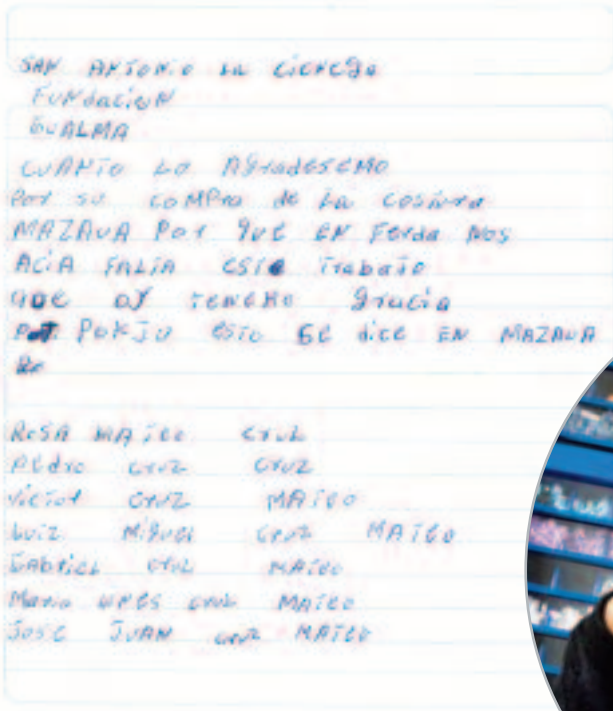 SAN ANTONIO LA CIENEGA
FUNdACION
GUALMA
CUANTO LO AGradESEMO
Por su COMPrO de La COSTURA
MAZAUA Por QUE EN FErda NOS
ACIA FALTA ESTE TrabaJo
QUE OY TENEMO Gracia
POKJU ESTO SE dice EN MAZAUA
ROSA MATEO CruZ
PEdro CruZ CruZ
VicTor CruZ MATEO
LuiZ MiGuel CruZ MATEO
GAbriel CruZ MATEO
Maria CruZ MATEO
JOSE JUAN CruZ MATEO